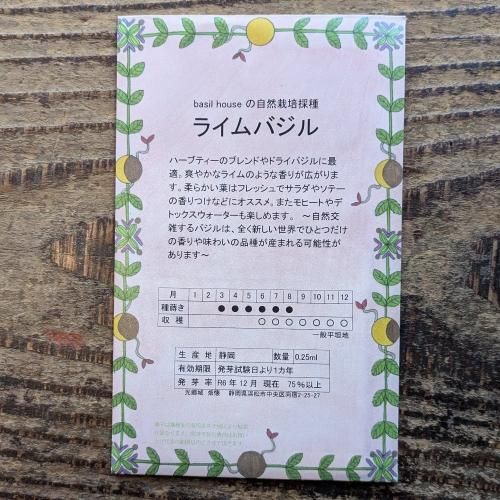 basil house の自然栽培採種
ライムバジル
ハーブティーのブレンドやドライバジルに最
適。爽やかなライムのような香りが広がりま
す。柔らかい葉はフレッシュでサラダやソテー
の香りつけなどにオススメ。またモヒートやデ
トックスウォーターも楽しめます。 ～自然交
雑するバジルは、全く新しい世界でひとつだけ
の香りや味わいの品種が産まれる可能性が
あります～
月 1 2 3 4 5 6 7 8 9 10 11 12
種蒔き ● ● ● ● ● ●
収穫 ○ ○ ○ ○ ○ ○ ○
一般平坦地
生産地 静岡 数量 0.25ml
有効期限 発芽試験日より1カ年
発芽率 R6年12月 現在 75%以上
光郷城 畑懐 静岡県浜松市中央区向宿2-25-27